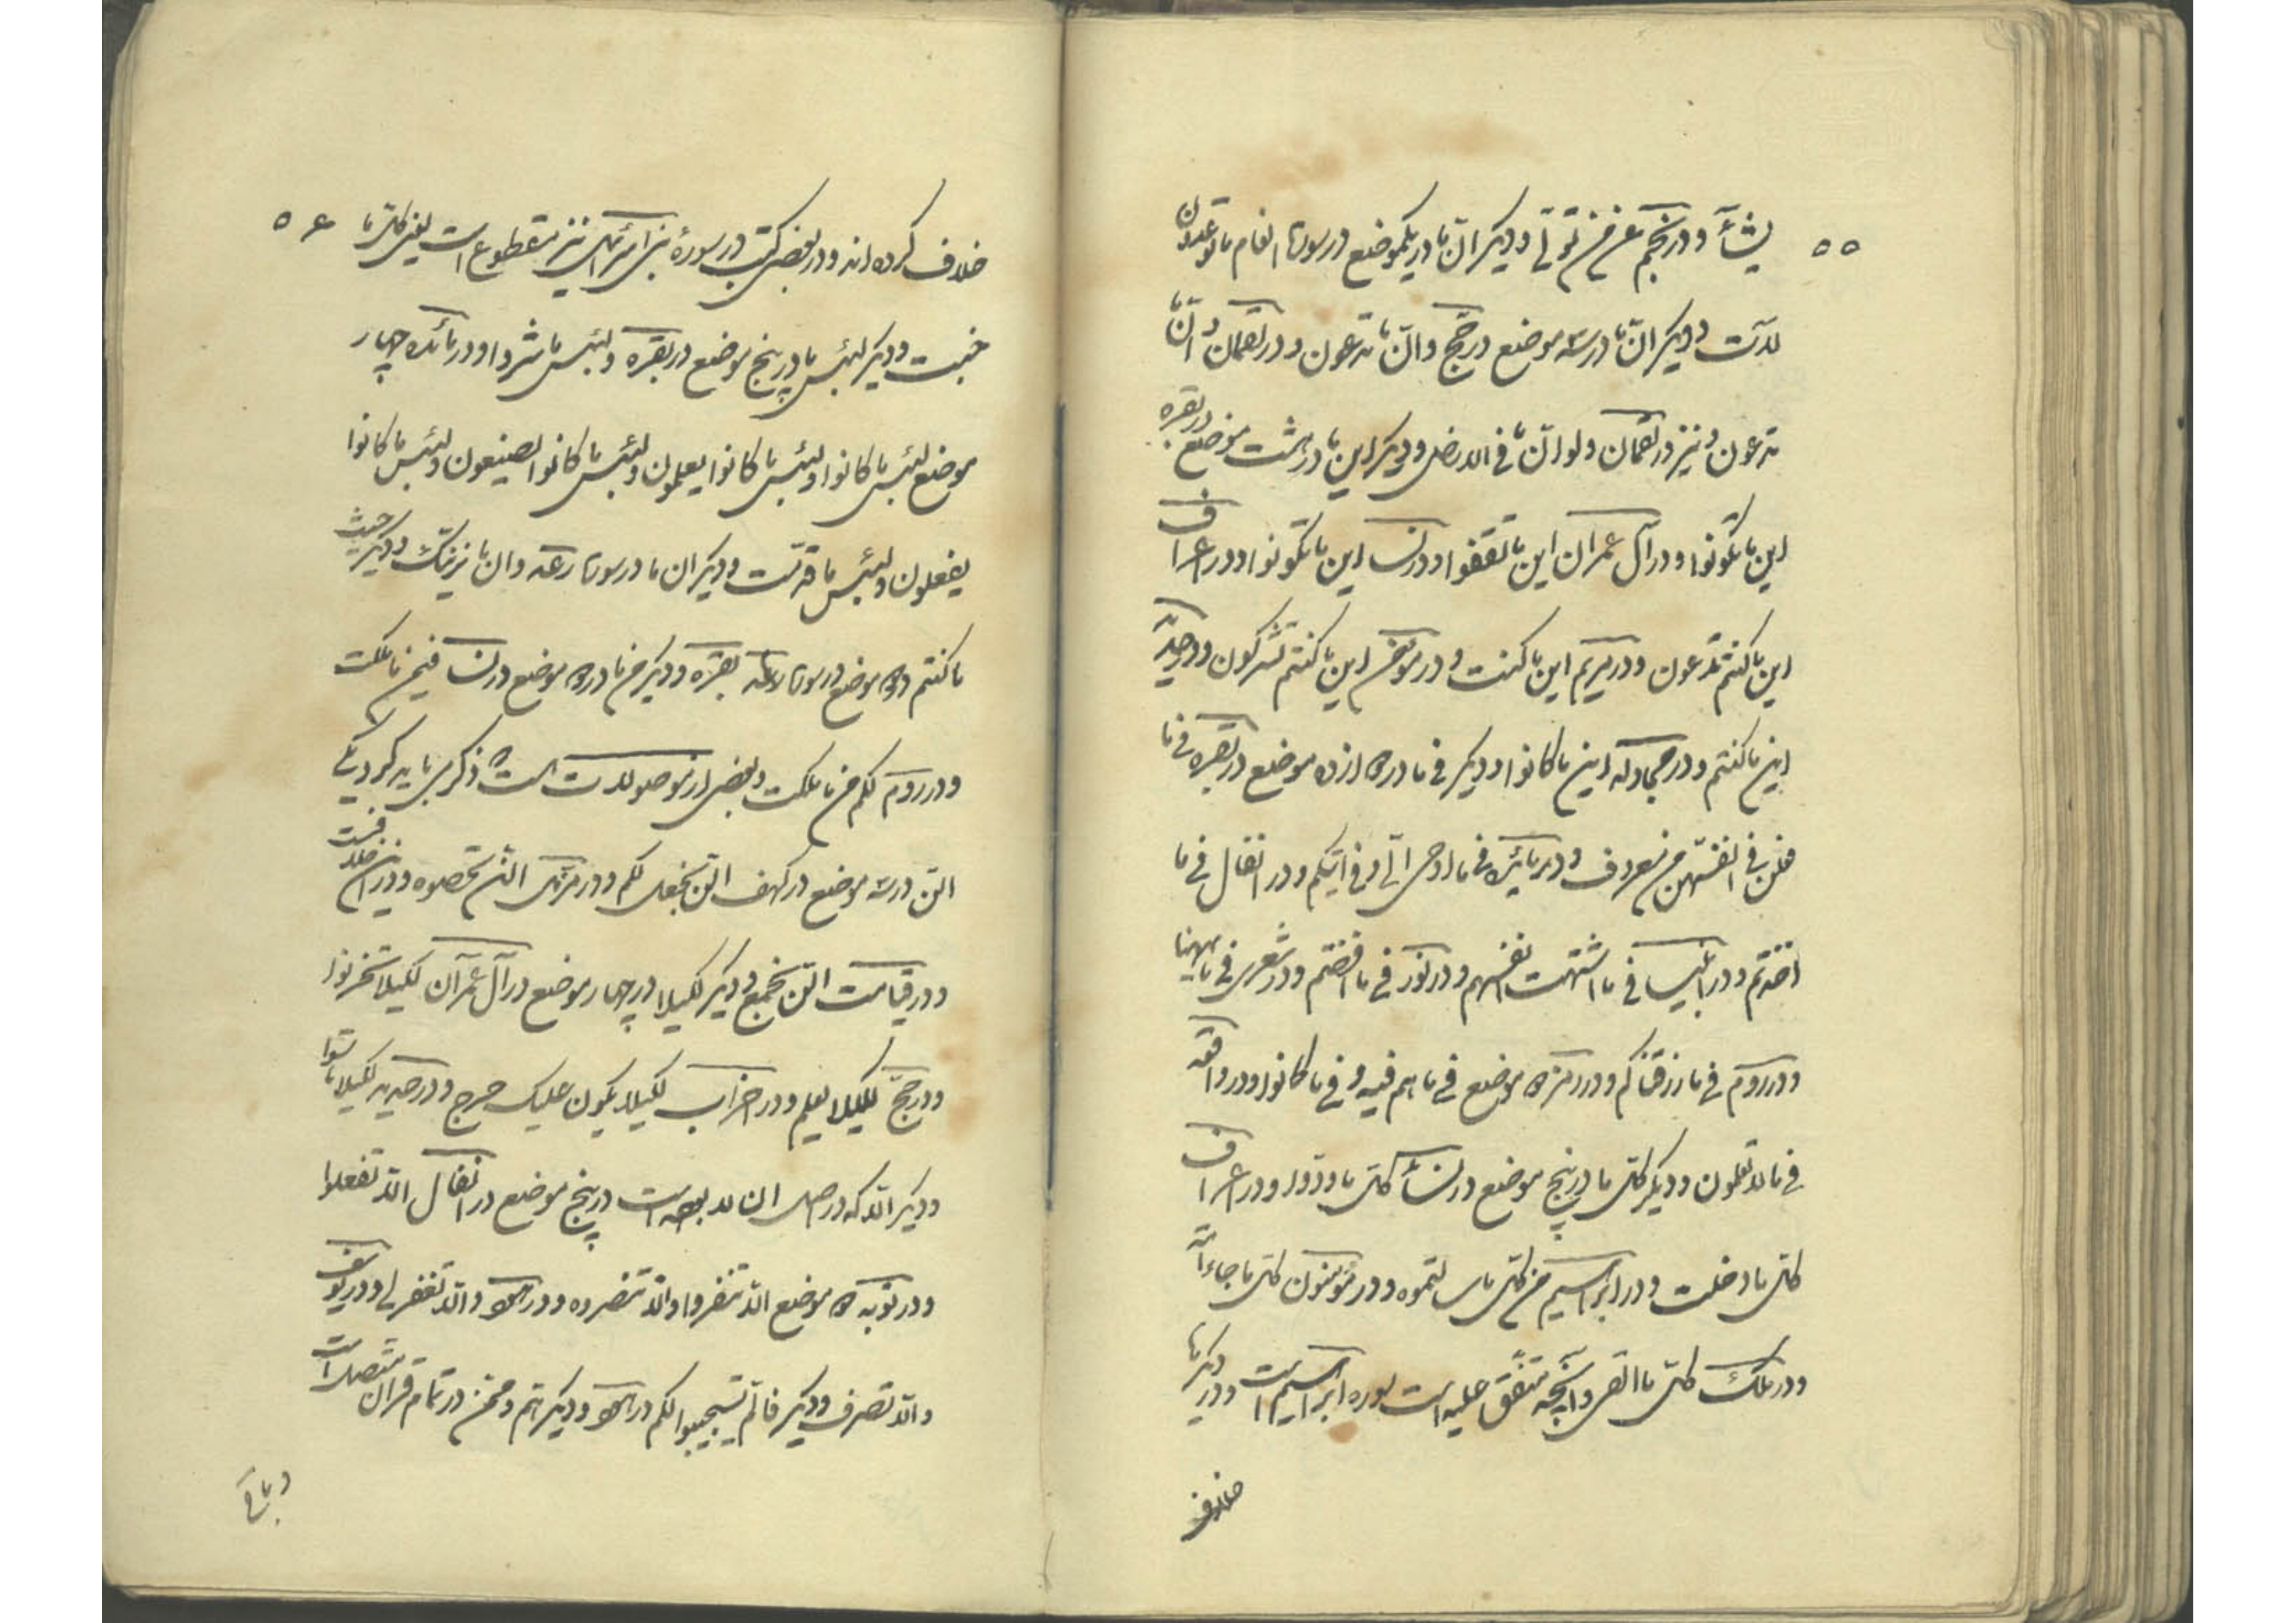 ۵۵
یشآء و در نجم عن من تولی و دیکر ان ما در یکموضع در سورهٔ انعام ما توعدون
لآت و دیکر انّ ما در سه موضع در حج و انّ ما تدعون و در لقمان و انّ ما
تدعون و نیز در لقمان و لو انّ ما فی الارض و دیکر این ما در هشت موضع در بقره
این ما تکونوا و در آل عمران این ما ثقفوا و در نسا این ما تکونوا و در اعراف
این ما کنتم تدعون و در مریم این ما کنت و در مؤمن این ما کنتم تشرکون و در حدید
این ما کنتم و در مجادله این ما کانوا و دیکر فی ما در ازده موضع در بقره فی ما
فعلن فی انفسهن من معروف و در مایده فی ما اوحی الی و فی اتیکم و در انفال فی ما
اخذتم و در انبیا فی ما اشتهت انفسهم و در نور فی ما افضتم و در شعرا فی ما ههنا
و در روم فی ما رزقناکم و در زمر موضع فی ما هم فیه و فی ما کانوا و در واقعه
فی ما لا تعلمون و دیکر کل ما در پنج موضع در نسآء کل ما ردّوا و در اعراف
کل ما دخلت و در ابراهیم من کل ما سالتموه و در مؤمنون کل ما جاء امة
و در ملک کل ما القی و آنچه متفق علیه است سوره ابراهیم است و در دیکرها
خلاف
۵۶
خلاف کرده اند و در بعضی کتب در سورهٔ بنی اسرائیل نیز مقطوع است یعنی کل ما
خبت و دیکر لبئس ما در پنج موضع در بقره و لبئس ما شروا و در مائده چهار
موضع لبئس ما کانوا و لبئس ما کانوا یعملون و لبئس ما کانوا یصنعون و لبئس ما کانوا
یفعلون و لبئس ما قدّمت و دیکر ان ما در سورهٔ رعد و ان ما نرینک و دیکر حیث
ما کنتم دو موضع در سورهٔ بقره و دیکر من ما در دو موضع در نسا فمن ما ملکت
و در روم لکم من ما ملکت و بعضی از موصولات است ذکر می باید کرد یکی
الن در سه موضع در کهف الن نجعل لکم و در مزمل الن تحصوه و در ان خلاف است
و در قیامت الن نجمع و دیکر لکیلا در چهار موضع در آل عمران لکیلا تحزنوا
و در حج لکیلا یعلم و در احزاب لکیلا یکون علیک حرج و در حدید لکیلا تاسوا
و دیکر الّا که در اصل ان لا بوده است در پنج موضع در انفال الّا تفعلوا
و در توبه دو موضع الّا تنفروا و الّا تنصروه و در هود و الّا تغفر لی و در یوسف
و الّا تصرف و دیکر فالّم یستجیبوا لکم در هود و دیکر عم و ممّن در تمام قران متصل است
و باقی